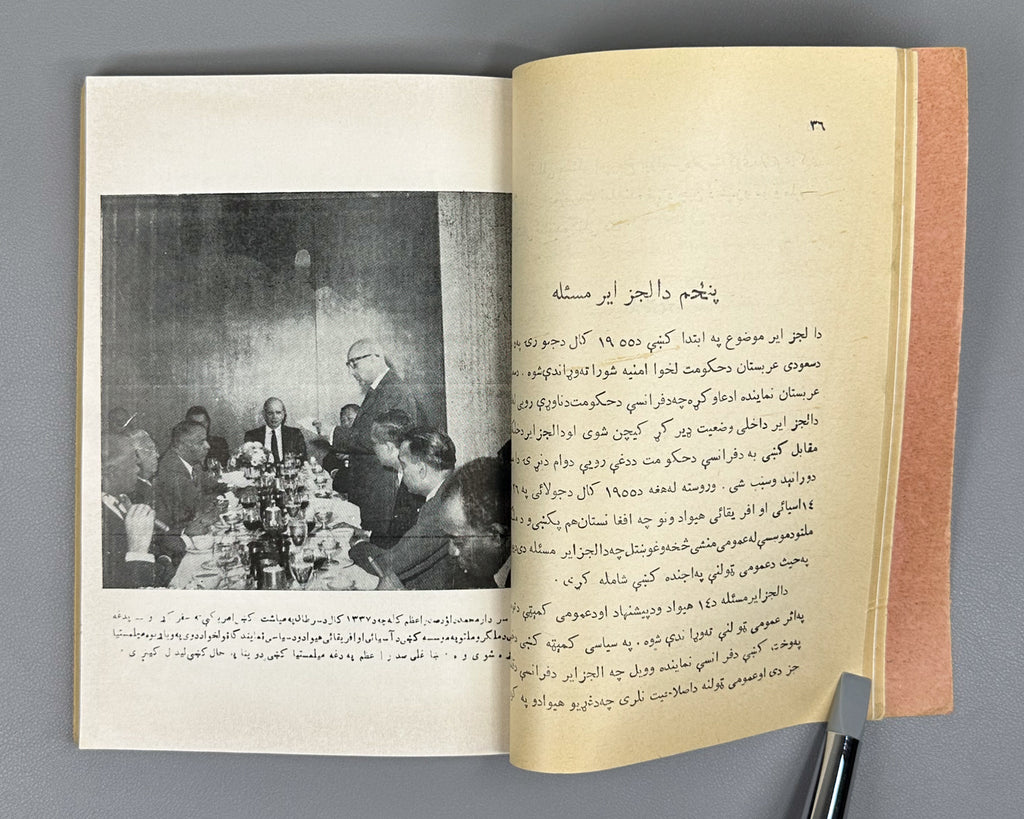 ۳٦
پنځم دالجز ایر مسئله
دا لجز ایر موضوع په ابتدا کښې د ۱۹۵۵ کال دجنو ری په
دسعودی عربستان دحکومت لخوا امنیه شورا ته وړاندې شوه .
عربستان نماینده ادعاو کړه چه دفرانسې دحکومت دناوړې رویې
دالجز ایر داخلی وضعیت ډیر کړ کیچن شوی اودالجزایر
مقابل کښی به دفرانسې دحکو مت ددغې رویې دوام دنړۍ
دورانېد وسبب شی . وروسته له هغه د ۱۹۵۵ کال دجولائی په ۲٦
۱٤اسیائی او افر یقائی هیواد ونو چه افغا نستان هم پکښې و
ملتودموسسې له عمومی منشی څخه وغوښتل چه دالجزایر مسئله دی
په حیث دعمومی ټولنې په اجنده کښې شامله کړی .
دالجزایر مسئله د۱٤ هیواد ودپیشنهاد اودعمومی کمیټې
په اثر عمومی ټولنې ته وړا ندې شوه . په سیاسی کمیټه کښې
په وخت کښې دفر انسې نماینده وویل چه الجزایر دفرانسې
جز دی اوعمومی ټولنه داصلاحیت نلری چه دغړیو هیوادو په
سر دار محمد داؤد صدراعظم کله چه د ۱۳۳۷ کال د سرطان په میاشت کښې امریکې ته سفر کړی و پدغه
دملگر وملتو په موسسه کښې د آسیائی او افریقائی هیوادو د سیاسی نمایند گانو لخوا ددوی په ویاړ یوه میلمستیا
شوی وه . ښاغلی صدر ا عظم په دغه میلمستیا کښې دوینا په حال کښې لیدل کیږی .